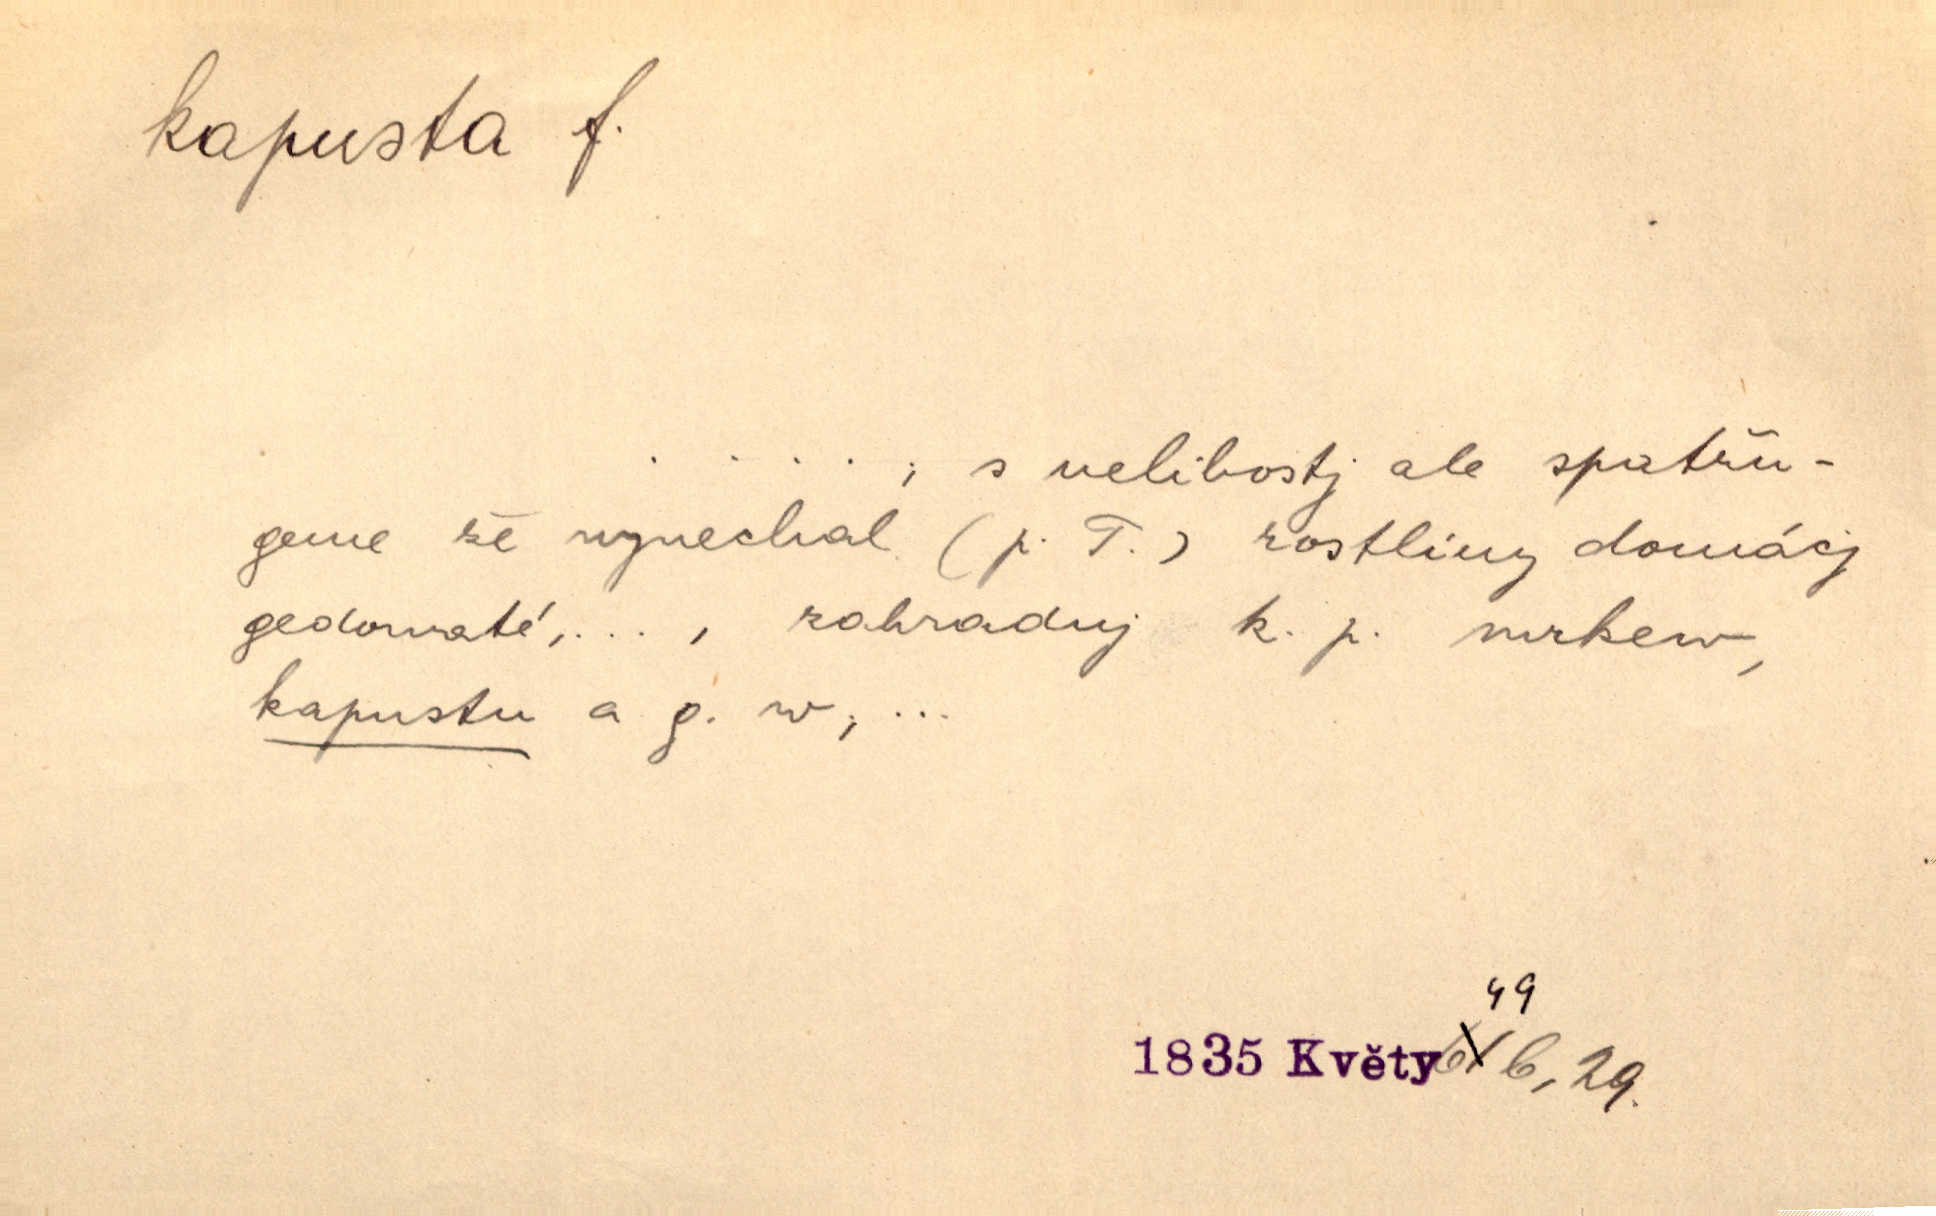 kapusta f.
. . . . ; s nelibostj ale spatřu-
geme že wynechal (p. T.) rostliny domácj
gedowaté,..., zahradnj k. p. mrkew,
kapustu a g. w; ...
49
1835 Květy b, 29.